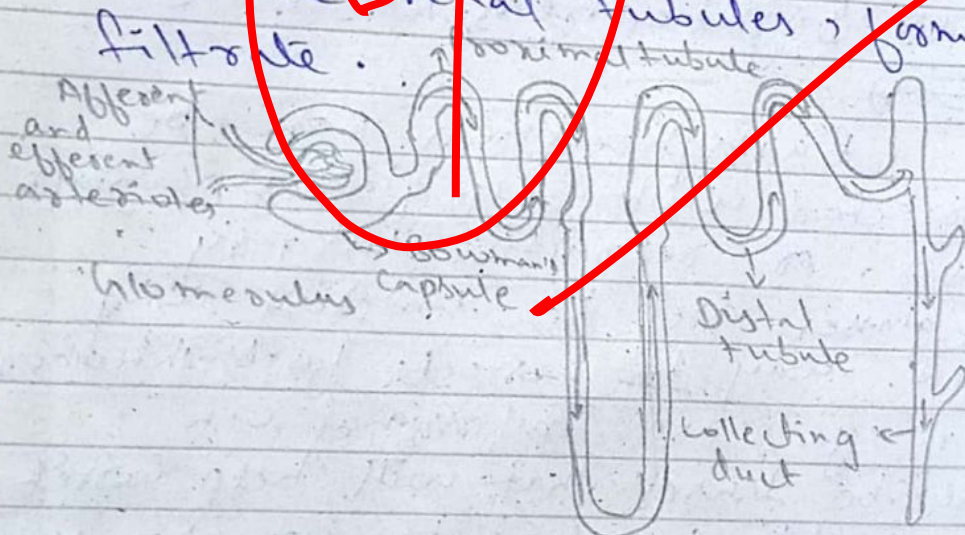 tubules, form
filtrate.
Proximal tubule
Afferent
and
efferent
arterioles
Bowman's
Glomerulus Capsule
Distal
tubule
Collecting
duct